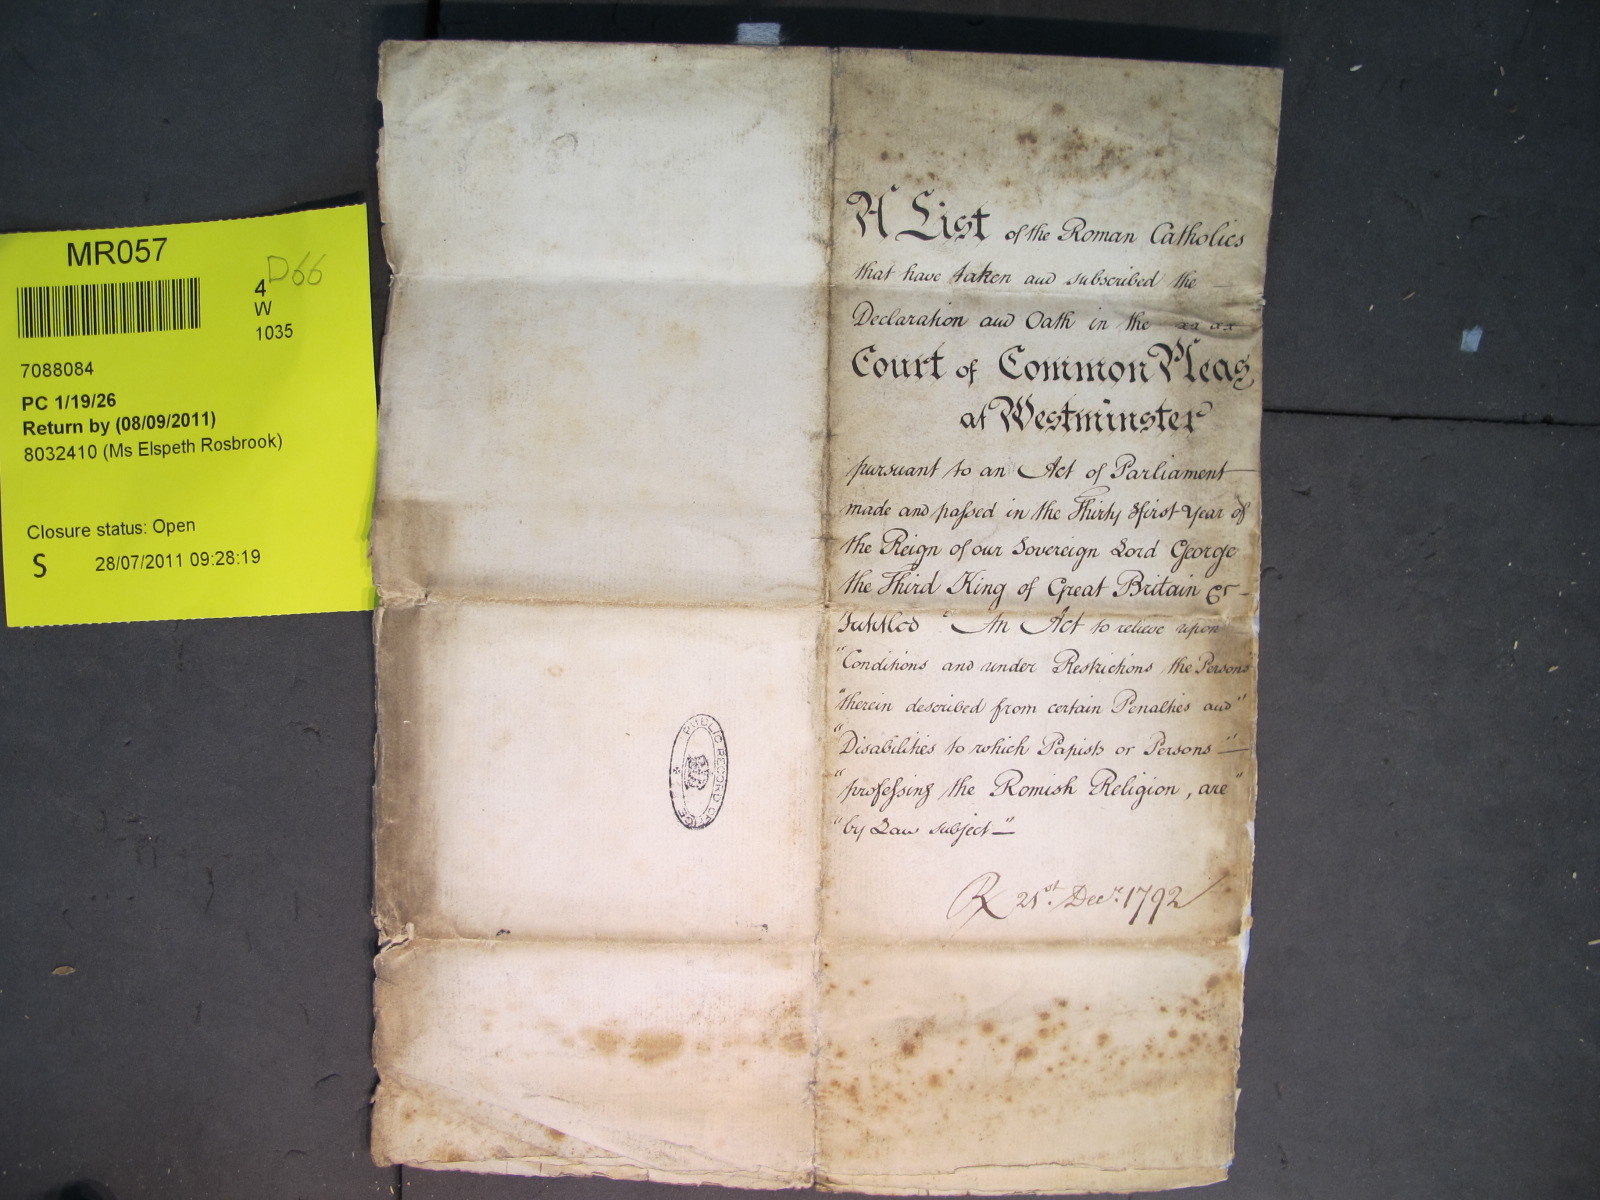 MR057
D66
4
W
1035
7088084
PC 1/19/26
Return by (08/09/2011)
8032410 (Ms Elspeth Rosbrook)
Closure status: Open
S 28/07/2011 09:28:19
A List of the Roman Catholics
that have taken and subscribed the
Declaration and Oath in the
Court of Common Pleas
at Westminster
pursuant to an Act of Parliament
made and passed in the Thirty first Year of
the Reign of our Sovereign Lord George
the Third King of Great Britain &c
Intitled "An Act to relieve upon
"Conditions and under Restrictions the Persons
"therein described from certain Penalties and"
"Disabilities to which Papists or Persons"
"professing the Romish Religion, are"
"by Law subject"
21st. Decr. 1792
PUBLIC RECORD OFFICE